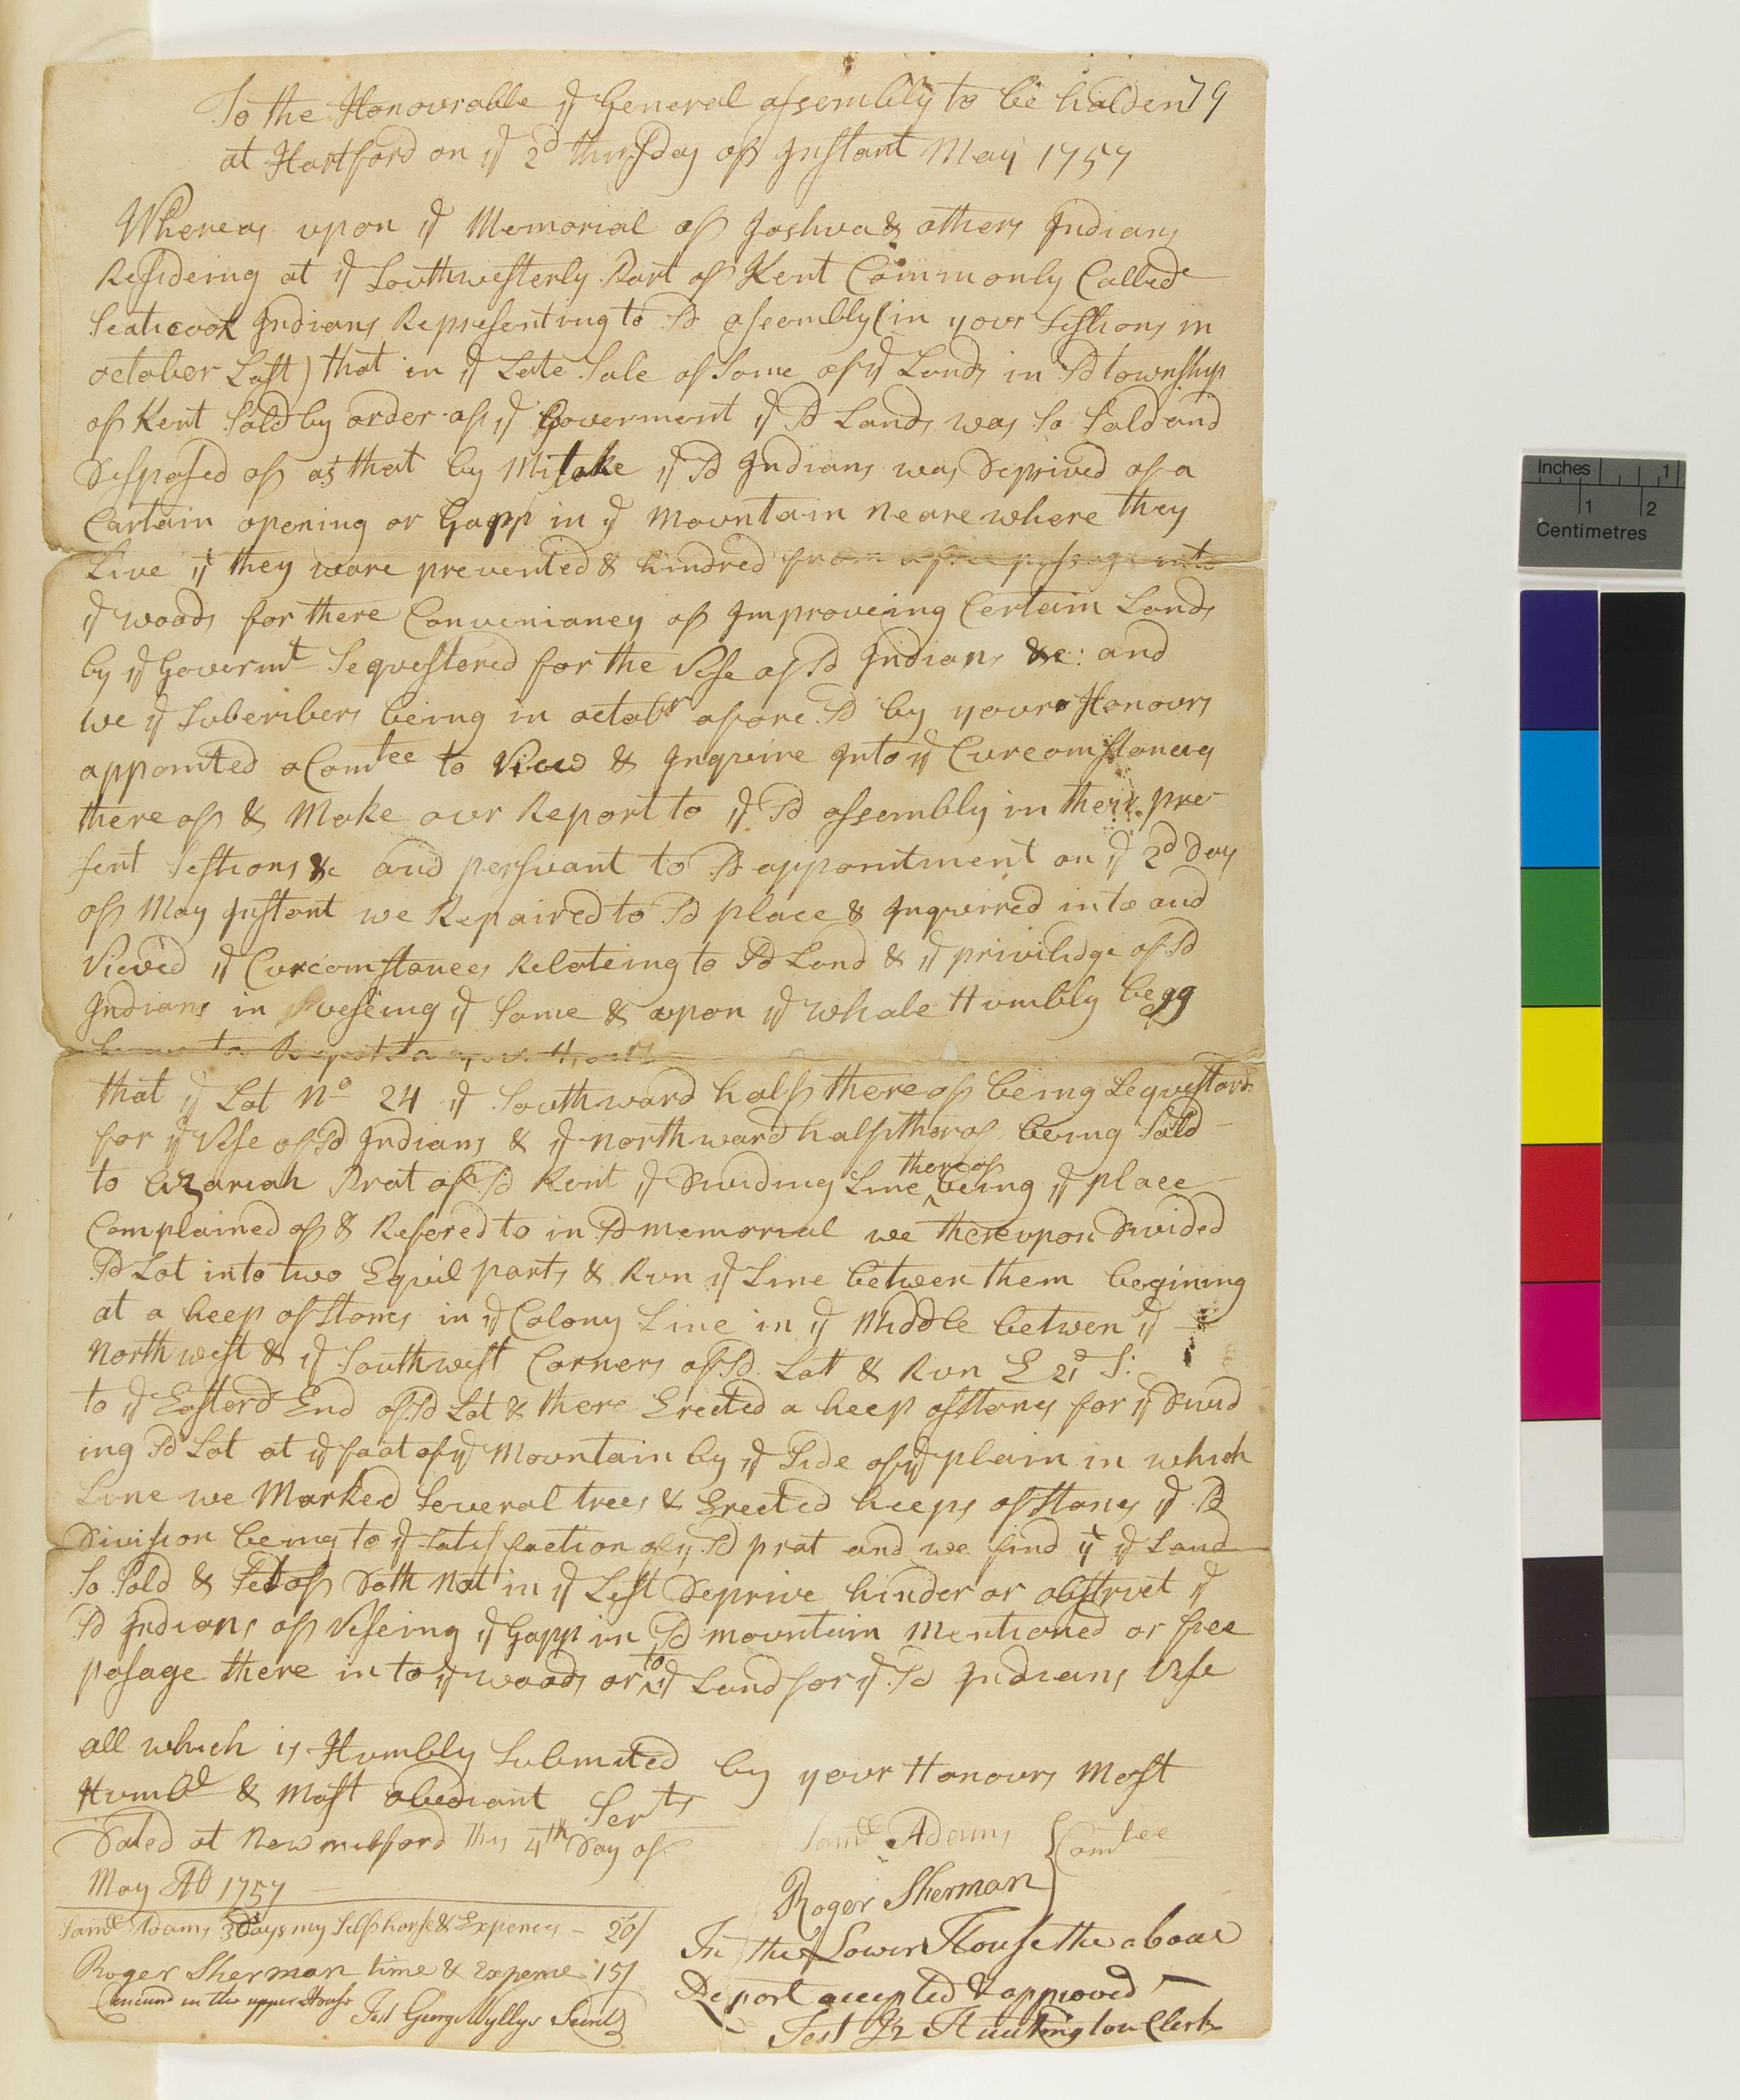 To the Honourable ye General assembly to be holden 79
at Hartford on ye 2d thursday off Instant May 1757
Whereas upon ye Memorial off Joshua & others Indians
Resideing at ye Southwesterly Part off Kent Commonly Called
Scaticook Indians Representing to Sd aseembly (in your Sestions in
october Last) that in ye Late Sale of Some of ye Lands in Sd township
off Kent Sold by order off ye Goverment ye Sd Lands was So Sold and
Desposed off as that by Mistake ye Sd Indians was Deprived of a
Cartain opening or Gapp in ye Mountain neare where they
Live yt they ware prevented & hindred from a free passage into
ye woods for there Conveniancy off Improveing Certain Lands
by ye Governt Sequestored for the Vse of Sd Indians &c: and
we ye Subcribers being in octobr afore Sd by youre Honours
appointed a Comtee to View & Inquire Into ye Curcomstances
there off & Make our Report to ye Sd assembly in their pre-
sent Sestions &c and persuant to Sd appointment on ye 2d Day
off May Instant we Repaired to Sd place & Inquired into and
Viewed ye Curcomstances Relateing to Sd Land & ye priviledge of Sd
Indians in Vseing ye Same & upon ye whole Humbly begg
Leave to Report to your Honrs
that ye Lot No 24 ye Southward half there off being Sequestord
for ye Vse of Sd Indians & ye northward half therof being Sold
to Azariah Prat off Sd Kent ye Dividing Line thereof being ye place
Complained off & Refered to in Sd memorial we thereupon Divided
Sd Lot into two Equil parts & Run ye Line between them begining
at a heep of stones in ye Colony Line in ye Middle betwen ye
northwest & ye Southwest Corners off Sd Lot & Run E 21d S:
to ye Easterd End off Sd Lot & there Erected a heep of stones for ye Divid
ing Sd Lot at ye foot of ye Mountain by ye Side of ye plain in which
Line we Marked Several trees & Erected heeps of stones ye Sd
Division being to ye Satisfaction of ye Sd prat and we find yt ye Land
So Sold & Set off Doth Not in ye Lest Deprive hinder or obstruct ye
Sd Indians off Vseing ye Gapp in Sd mountain Mentioned or free
pasage there in to ye woods or to ye Land for ye Sd Indians Vse
all which is Humbly Submited by your Honours Most
Humble & Most obediant Serts
Dated at New milford this 4th Day of
May AD 1757
Samll Adams
Roger Sherman
Comtee
Samll Adams 3 Days my Self horse & Expences - 20/
Roger Sherman time & Expence 15/
In the Lower House the above
Report accepted & approved
Test Jz Huntington Clerk
Concurd in the upper House
Test George Wyllys Secret